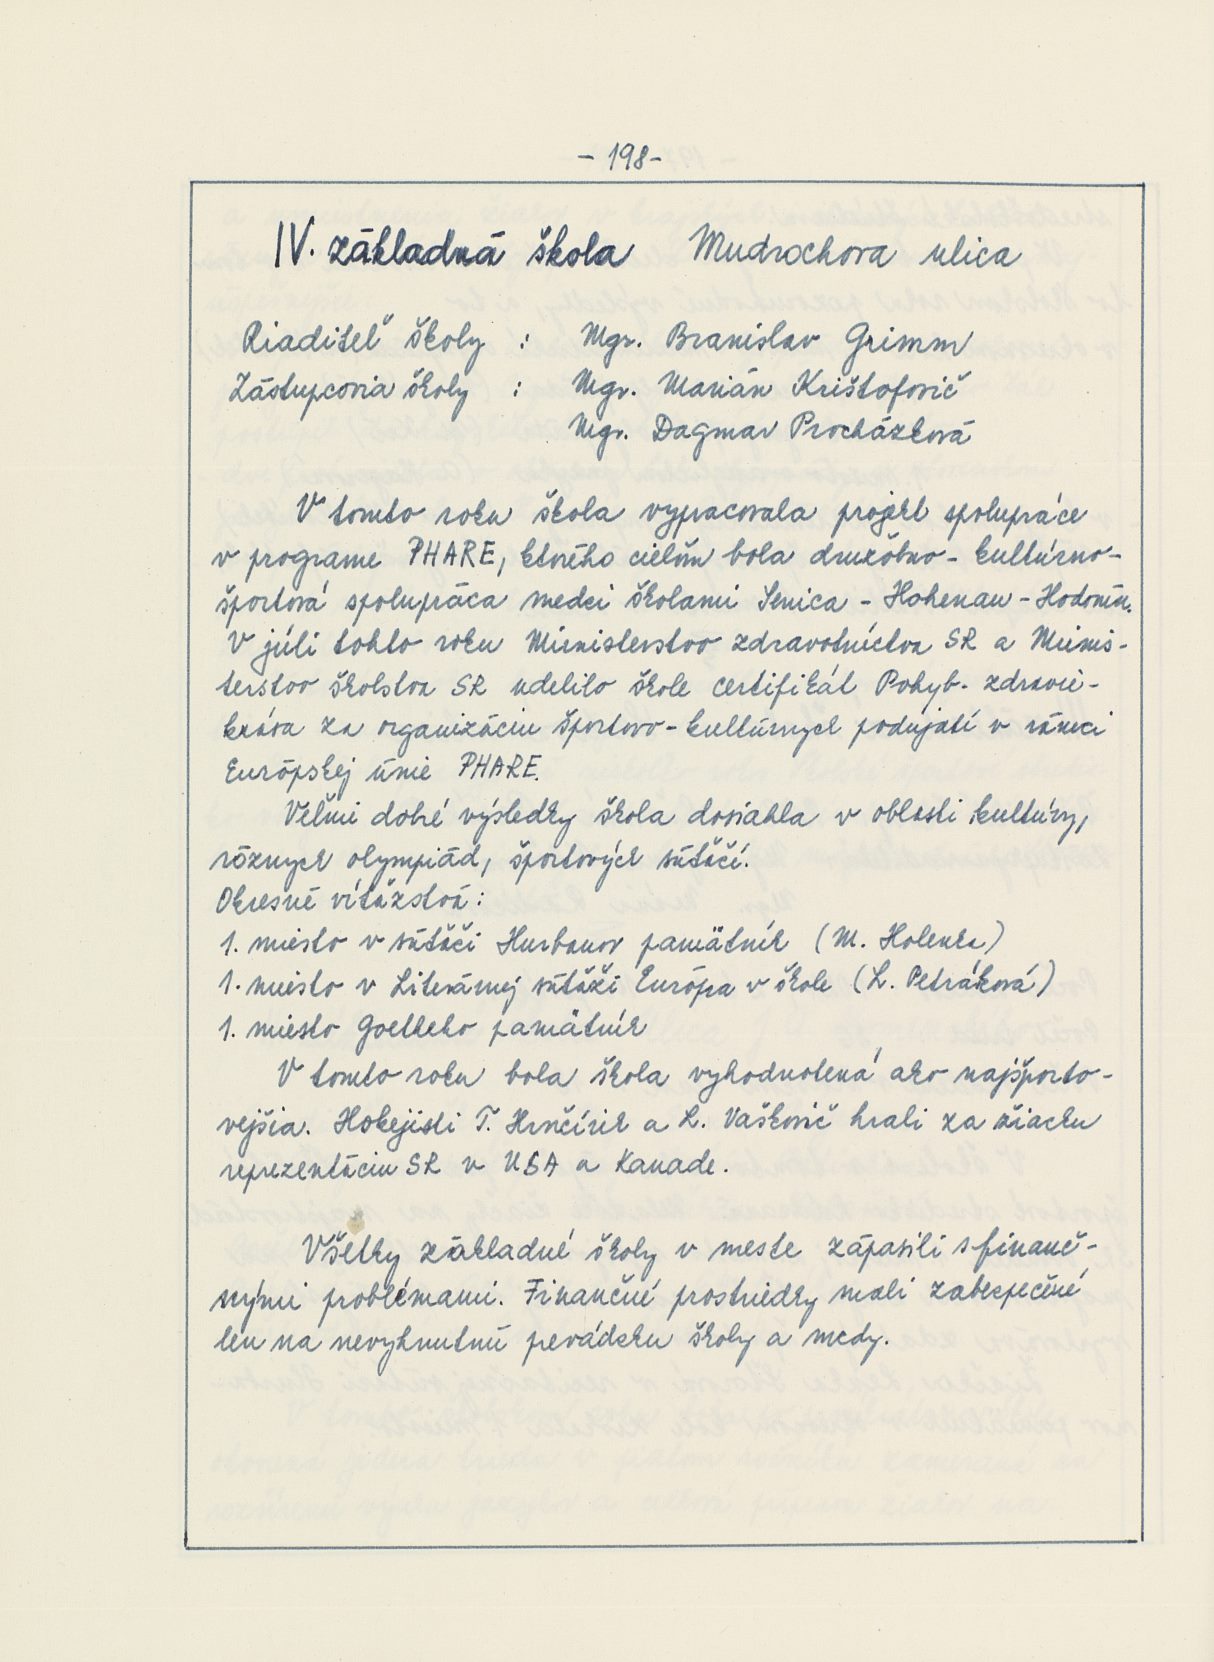 - 198 -
IV. základná škola Mudrochova ulica
Riaditeľ školy : Mgr. Branislav Grimm
Zástupcovia školy : Mgr. Marián Krištofovič
Mgr. Dagmar Procházková
V tomto roku škola vypracovala projekt spolupráce
v programe PHARE, ktorého cieľom bola družobno - kultúrno -
športová spolupráca medzi školami Senica - Hohenau - Hodonín.
V júli tohto roku Ministerstvo zdravotníctva SR a Minis-
terstvo školstva SR udelilo škole certifikát Pohyb - zdravie -
krása za organizáciu športovo - kultúrnych podujatí v rámci
Európskej únie PHARE.
Veľmi dobré výsledky škola dosiahla v oblasti kultúry,
rôznych olympiád, športových súťaží.
Okresné víťazstvá :
1. miesto v súťaži Hurbanov pamätník (M. Holenka)
1. miesto v Literárnej súťaži Európa v škole (L. Petráková)
1. miesto Goetheho pamätník
V tomto roku bola škola vyhodnotená ako najšporto-
vejšia. Hokejisti T. Hrnčírik a L. Vaškovič hrali za žiacku
reprezentáciu SR v USA a Kanade.
Všetky základné školy v meste zápasili s finanč-
nými problémami. Finančné prostriedky mali zabezpečené
len na nevyhnutnú prevádzku školy a mzdy.